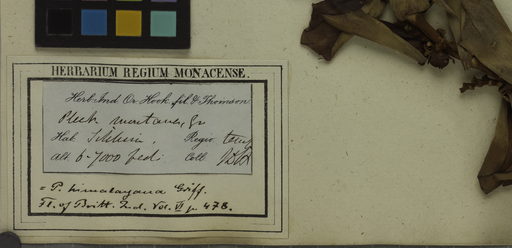 HERBARIUM REGIUM MONACENSE.
Herb. Ind. Or. Hook. fil. & Thomson
Plect. montana, Gr
Hab. Sikkim. Regio temp.
alt. 6-7000 ped. Coll. J.D.H.
= P. himalayana Griff.
Fl. of Britt. Ind. Vol. VI p. 478.